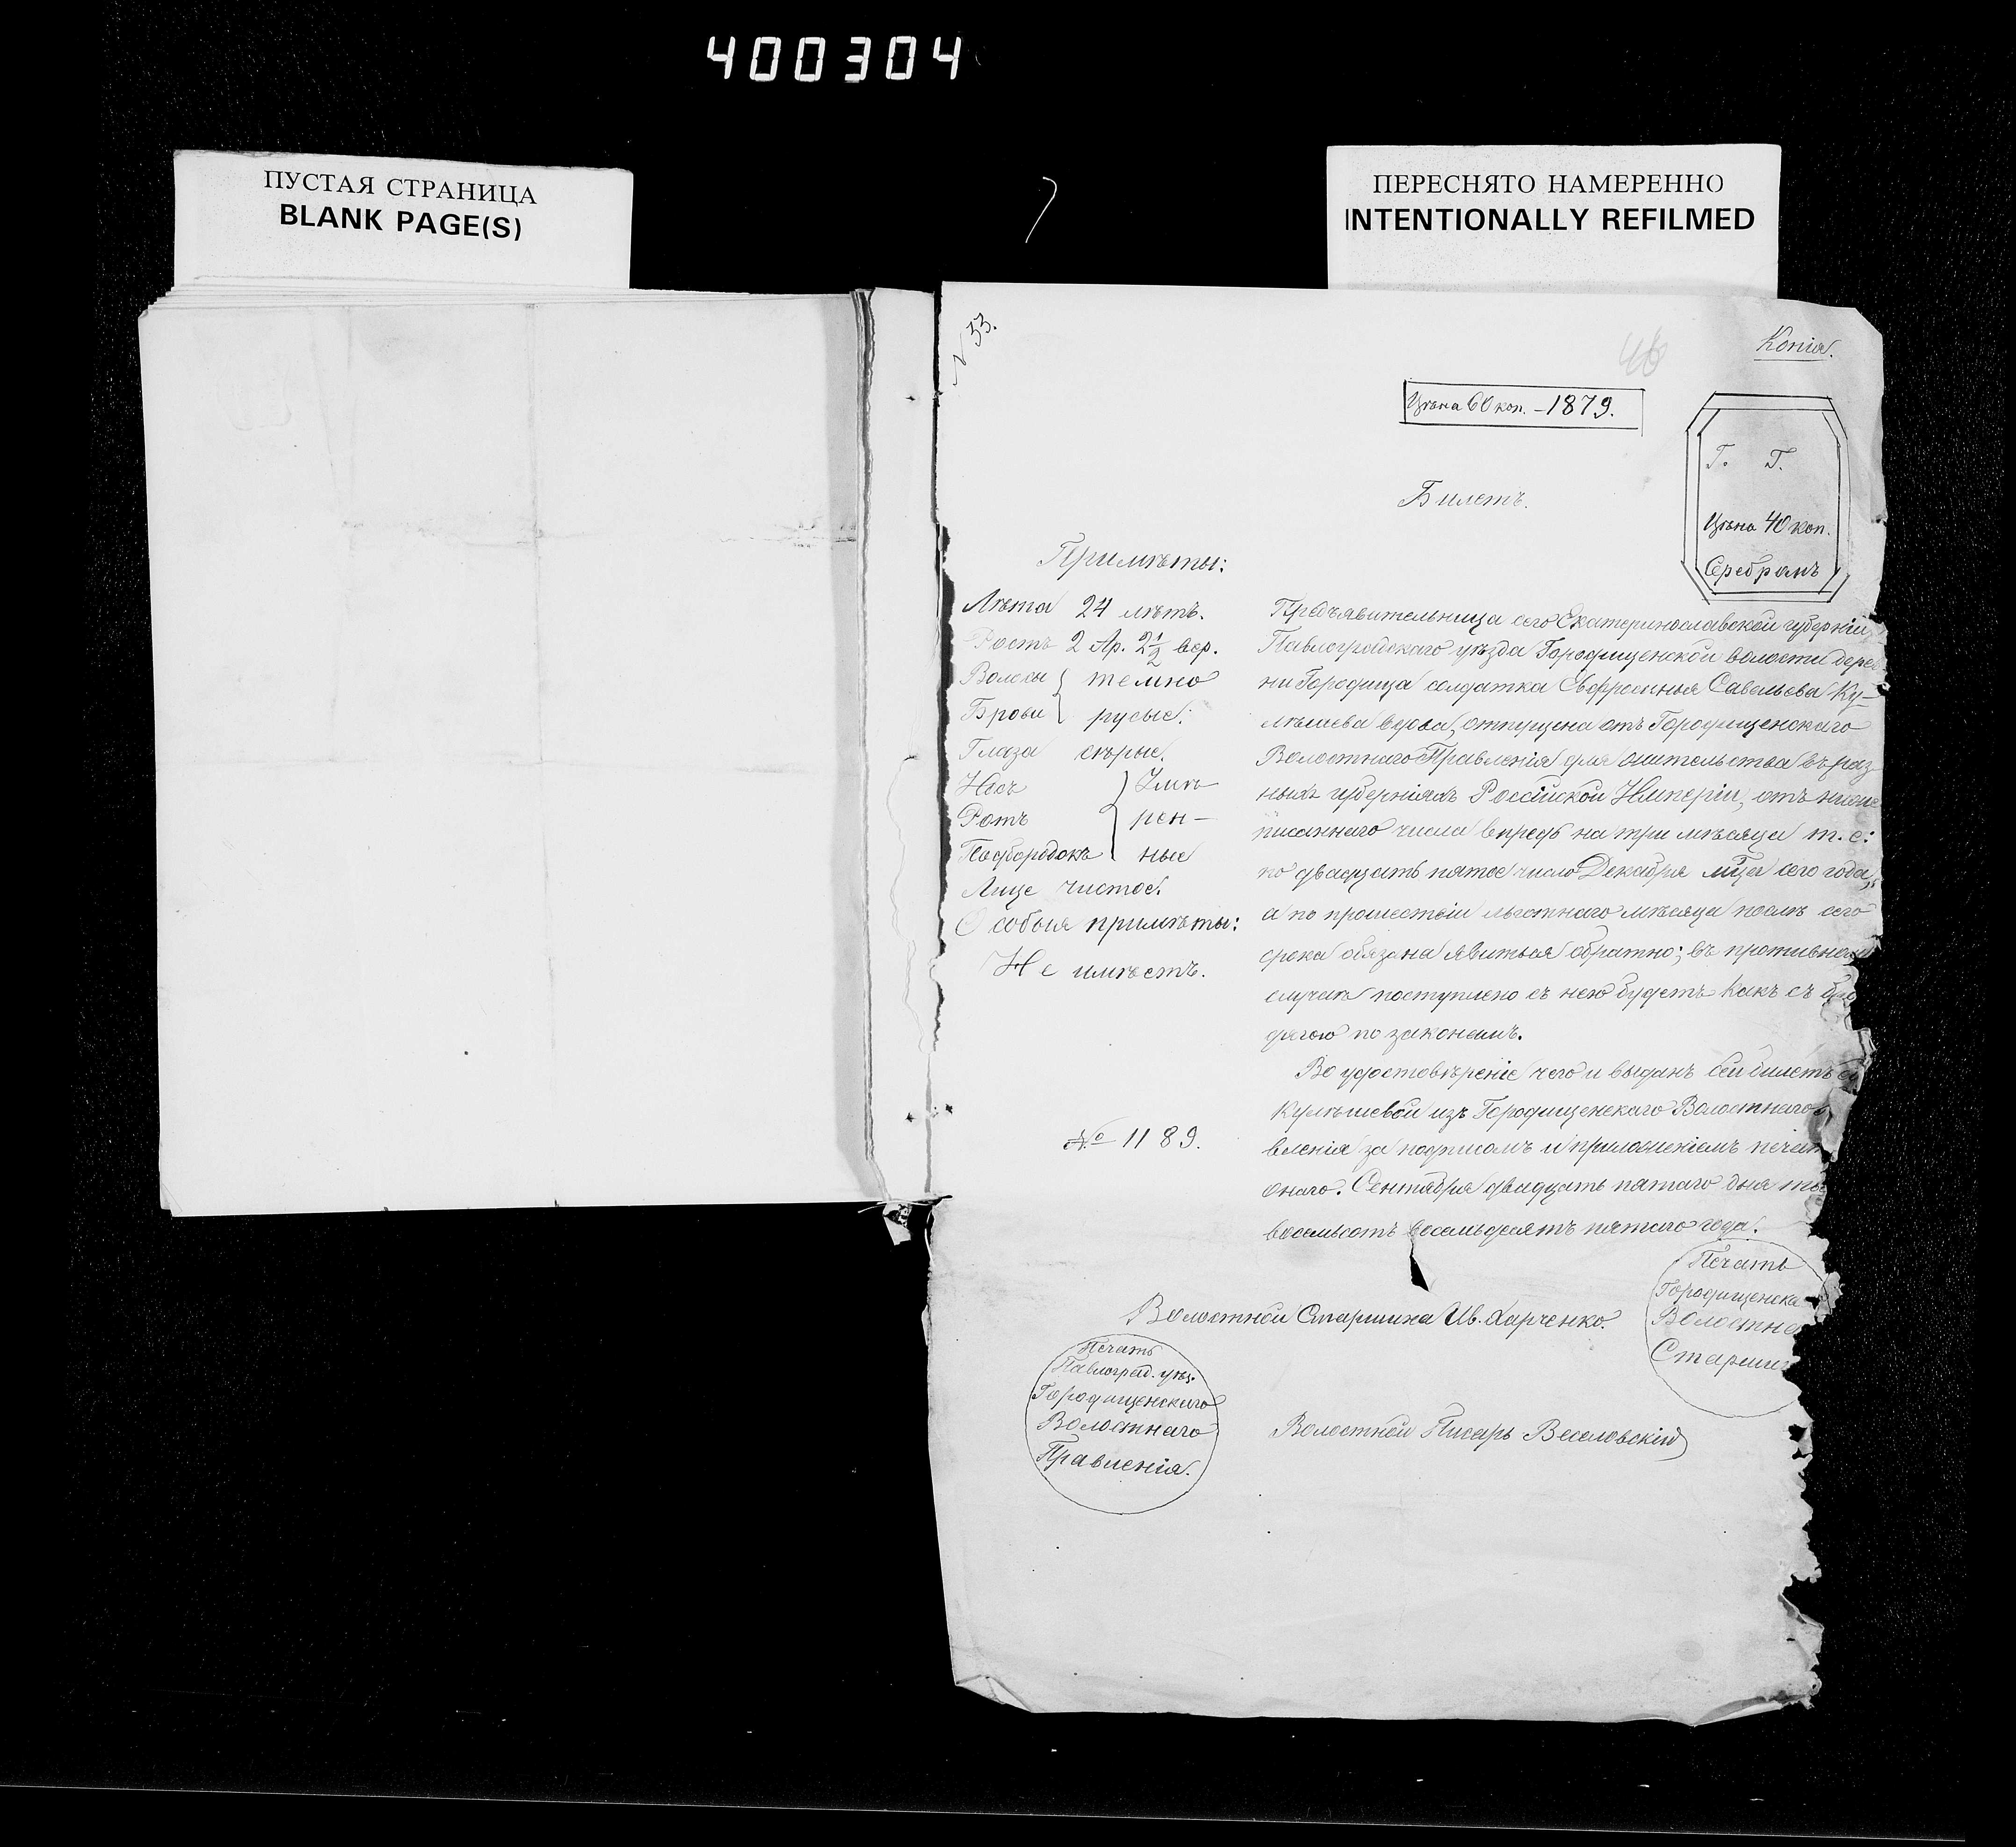 400304
ПУСТАЯ СТРАНИЦА
BLANK PAGE(S)
ПЕРЕСНЯТО НАМЕРЕННО
INTENTIONALLY REFILMED
N 33.
46
Копія.
Цѣна 60 коп. – 1879.
Г. Г.
Цѣна 40 коп.
Серебромъ
Билетъ.
Примѣты:
Лѣта 24 лѣтъ.
Ростъ 2 Ар. 2 1/2 вер.
Волосы } темно
Брови } русые.
Глаза сѣрые.
Носъ } Умѣ
Ротъ } рен–
Подбородокъ } ные
Лице чистое.
Особыя примѣты:
Не имѣетъ.
№ 1189.
Предъявительница сего Екатеринославской губерніи
Павлоградскаго уѣзда Городищенской волости дерев
ни Городища солдатка Евфросинья Савельева Ку–
лѣшева вдова, отпущена отъ Городищенскаго
Волостнаго Правленія для жительства въ раз
ныхъ губерніяхъ Россійской Имперіи, отъ ниже
писаннаго числа впредь на три мѣсяца т. е:
по двадцать пятое число Декабря мца сего года,
а по прошествіи льготнаго мѣсяца послѣ сего
срока обязана явиться обратно; въ противном
случаѣ поступлено съ нею будетъ какъ съ бро
дягою по законамъ.
Во удостовѣреніе чего и выданъ сей билетъ
Кулѣшевой изъ Городищенскаго Волостнаго
вленія за подписомъ и приложеніемъ печат
онаго. Сентября двадцать пятаго дня ты
восемьсотъ восемьдесятъ пятаго года.
Печать
Городищенска
Волостно
Старши
Волостной Старшина Ив. Харченко.
Печать
Павлоград. уѣз.
Городищенскаго
Волостнаго
Правленія.
Волостной Писарь Веселовскій